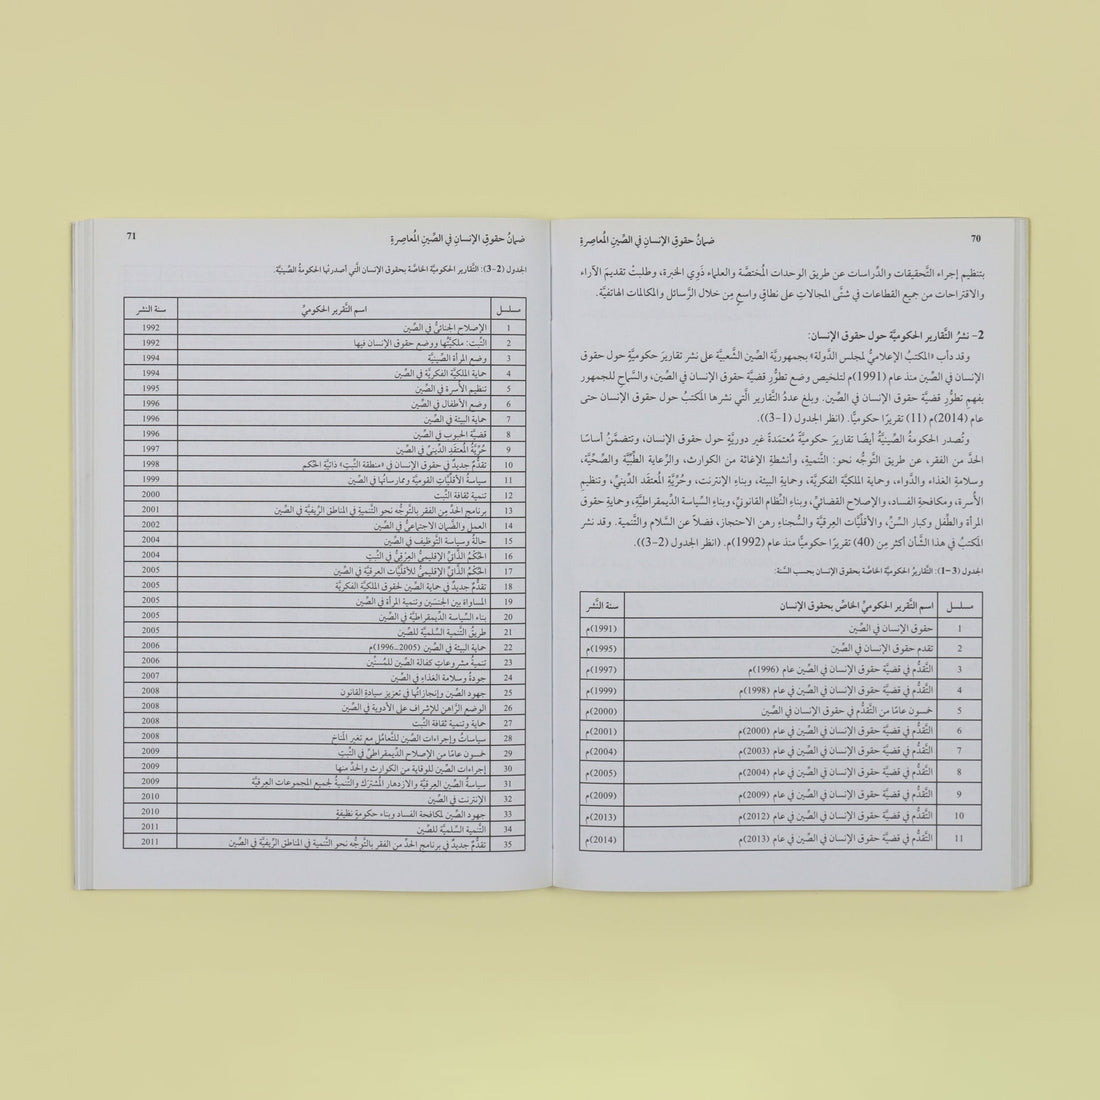 70
ضمانُ حقوقِ الإنسانِ في الصِّينِ المُعاصِرةِ
بتنظيم إجراء التَّحقيقات والدِّراسات عن طريق الوحدات المُختصَّة والعلماء ذَوِي الخبرة، وطلبتْ تقديمَ الآراء
والاقتراحات من جميع القطاعات في شتَّى المجالات على نطاق واسع مِن خلال الرَّسائل والمكالمات الهاتفيَّة.
2- نشرُ التَّقارير الحكوميَّة حول حقوق الإنسان:
وقد دأب «المكتبُ الإعلاميُّ لمجلس الدَّولة» بجمهوريَّة الصِّين الشَّعبيَّة على نشر تقاريرَ حكوميَّةٍ حول حقوق
الإنسان في الصِّين منذ عام (1991)م لتلخيص وضع تطوُّرِ قضيَّة حقوق الإنسان في الصِّين، والسَّماحِ للجمهور
بفهمِ تطوُّرِ قضيَّة حقوق الإنسان في الصِّين. وبلغ عددُ التَّقارير الَّتي نشرها المكتبُ حول حقوق الإنسان حتى
عام (2014)م (11) تقريرًا حكوميًّا. (انظر الجدول (1-3)).
وتُصدر الحكومةُ الصِّينيَّةُ أيضًا تقاريرَ حكوميَّةً مُعتمَدةً غير دوريَّةٍ حول حقوق الإنسان، وتتضمَّنُ أساسًا
الحدَّ من الفقر، عن طريق التَّوجُّه نحو: التَّنميةِ، وأنشطةِ الإغاثة من الكوارث، والرِّعاية الطِّبِّيَّة والصِّحِّيَّة،
وسلامةِ الغذاء والدَّواء، وحماية الملكيَّة الفكريَّة، وحماية البيئة، وبناءِ الإنترنت، وحُرِّيَّةِ المُعتقَد الدِّينيِّ، وتنظيمِ
الأُسرة، ومكافحة الفساد، والإصلاح القضائيِّ، وبناءِ النِّظام القانونيِّ، وبناءِ السِّياسة الدِّيمقراطيَّةِ، وحمايةِ حقوق
المرأة والطِّفل وكبار السِّنِّ، والأقلِّيَّات العِرقيَّة والسُّجناءِ رهن الاحتجاز، فضلًا عن السَّلام والتَّنمية. وقد نشر
المكتبُ في هذا الشَّأن أكثرَ مِن (40) تقريرًا حكوميًّا منذ عام (1992)م. (انظر الجدول (2-3)).
الجدول (3-1): التَّقاريرُ الحكوميَّة الخاصَّة بحقوق الإنسان بحسب السَّنة:
مسلسل اسم التَّقرير الحكوميِّ الخاصِّ بحقوق الإنسان سنة النَّشر
1 حقوق الإنسان في الصِّين (1991)م
2 تقدم حقوق الإنسان في الصِّين (1995)م
3 التَّقدُّم في قضيَّة حقوق الإنسان في الصِّين عام (1996)م (1997)م
4 التَّقدُّم في قضيَّة حقوق الإنسان في الصِّين عام (1998)م (1999)م
5 خمسون عامًا من التَّقدُّم في حقوق الإنسان في الصِّين (2000)م
6 التَّقدُّم في قضيَّة حقوق الإنسان في الصِّين في عام (2000)م (2001)م
7 التَّقدُّم في قضيَّة حقوق الإنسان في الصِّين في عام (2003)م (2004)م
8 التَّقدُّم في قضيَّة حقوق الإنسان في الصِّين في عام (2004)م (2005)م
9 التَّقدُّم في قضيَّة حقوق الإنسان في الصِّين في عام (2009)م (2009)م
10 التَّقدُّم في قضيَّة حقوق الإنسان في الصِّين في عام (2012)م (2013)م
11 التَّقدُّم في قضيَّة حقوق الإنسان في الصِّين في عام (2013)م (2014)م
ضمانُ حقوقِ الإنسانِ في الصِّينِ المُعاصِرةِ
71
الجدول (2-3): التَّقارير الحكوميَّة الخاصَّة بحقوق الإنسان الَّتي أصدرتْها الحكومةُ الصِّينيَّة:
مسلسل اسم التَّقرير الحكوميِّ سنة النشر
1 الإصلاح الجنائيُّ في الصِّين 1992
2 التِّبت: ملكيَّتُها ووضع حقوق الإنسان فيها 1992
3 وضع المرأة الصِّينيَّة 1994
4 حماية الملكيَّة الفكريَّة في الصِّين 1994
5 تنظيم الأُسرة في الصِّين 1995
6 وضع الأطفال في الصِّين 1996
7 حماية البيئة في الصِّين 1996
8 قضيَّة الحبوب في الصِّين 1996
9 حُرِّيَّةُ المُعتقَد الدِّينيِّ في الصِّين 1997
10 تقدُّم جديدٌ في حقوق الإنسان في «منطقة التِّبت» ذاتيَّةِ الحُكم 1998
11 سياسةُ الأقلِّيَّات القوميَّة وممارساتُها في الصِّين 1999
12 تنمية ثقافة التِّبت 2000
13 برنامج الحدِّ مِن الفقر بالتَّوجُّه نحو التَّنمية في المناطق الرِّيفيَّة في الصِّين 2001
14 العمل والضَّمان الاجتماعيُّ في الصِّين 2002
15 حالةُ وسياسة التَّوظيف في الصِّين 2004
16 الحُكمُ الذَّاتيُّ الإقليميُّ العِرْقيُّ في التِّبت 2004
17 الحُكمُ الذَّاتيُّ الإقليميُّ للأقلِّيَّات العرقيَّة في الصِّين 2005
18 تقدُّمٌ جديدٌ في حماية الصِّين لحقوق الملكيَّة الفكريَّة 2005
19 المساواة بين الجنسَين وتنمية المرأة في الصِّين 2005
20 بناء السِّياسة الدِّيمقراطيَّة في الصِّين 2005
21 طريقُ التَّنمية السِّلميَّة للصِّين 2005
22 حماية البيئة في الصِّين (2005-1996)م 2006
23 تنميةُ مشروعات كفالة الصِّين للمُسنِّين 2006
24 جودةُ وسلامة الغذاء في الصِّين 2007
25 جهود الصِّين وإنجازاتُها في تعزيز سيادة القانون 2008
26 الوضع الرَّاهن للإشراف على الأدوية في الصِّين 2008
27 حماية وتنمية ثقافة التِّبت 2008
28 سياساتُ وإجراءات الصِّين للتَّعامُل مع تغير المُناخ 2008
29 خمسون عامًا من الإصلاح الدِّيمقراطيِّ في التِّبت 2009
30 إجراءات الصِّين للوقاية من الكوارث والحدِّ منها 2009
31 سياسةُ الصِّين العِرقيَّة والازدهار المُشترَك والتَّنميةُ لجميع المجموعات العِرقيَّة 2009
32 الإنترنت في الصِّين 2010
33 جهود الصِّين لمكافحة الفساد وبناء حكومةٍ نظيفةٍ 2010
34 التَّنمية السِّلميَّة للصِّين 2011
35 تقدُّمٌ جديدٌ في برنامج الحدِّ من الفقر بالتَّوجُّه نحو التَّنمية في المناطق الرِّيفيَّة في الصِّين 2011